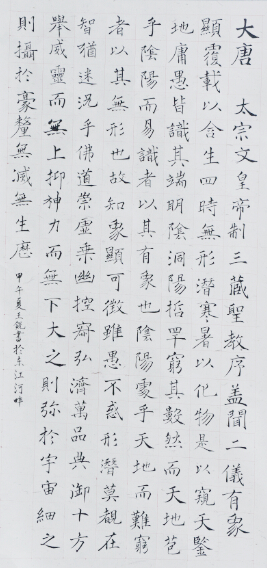 大唐 太宗文皇帝制三藏聖教序蓋聞二儀有象
顯覆載以含生四時無形潛寒暑以化物是以窺天鑒
地庸愚皆識其端明陰洞陽哲罕窮其數然而天地苞
乎陰陽而易識者以其有象也陰陽處乎天地而難窮
者以其無形也故知象顯可徵雖愚不惑形潛莫覩在
智猶迷況乎佛道崇虛乘幽控寂弘濟萬品典御十方
舉威靈而無上抑神力而無下大之則彌於宇宙細之
則攝於豪釐無滅無生歷
甲午夏王 書於 江河畔